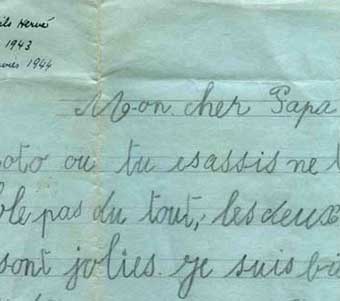 ils Hervé
1943
1944
Mon cher Papa
oto ou tu esassis ne
ble pas du tout, les deux
sont jolies. je suis bi